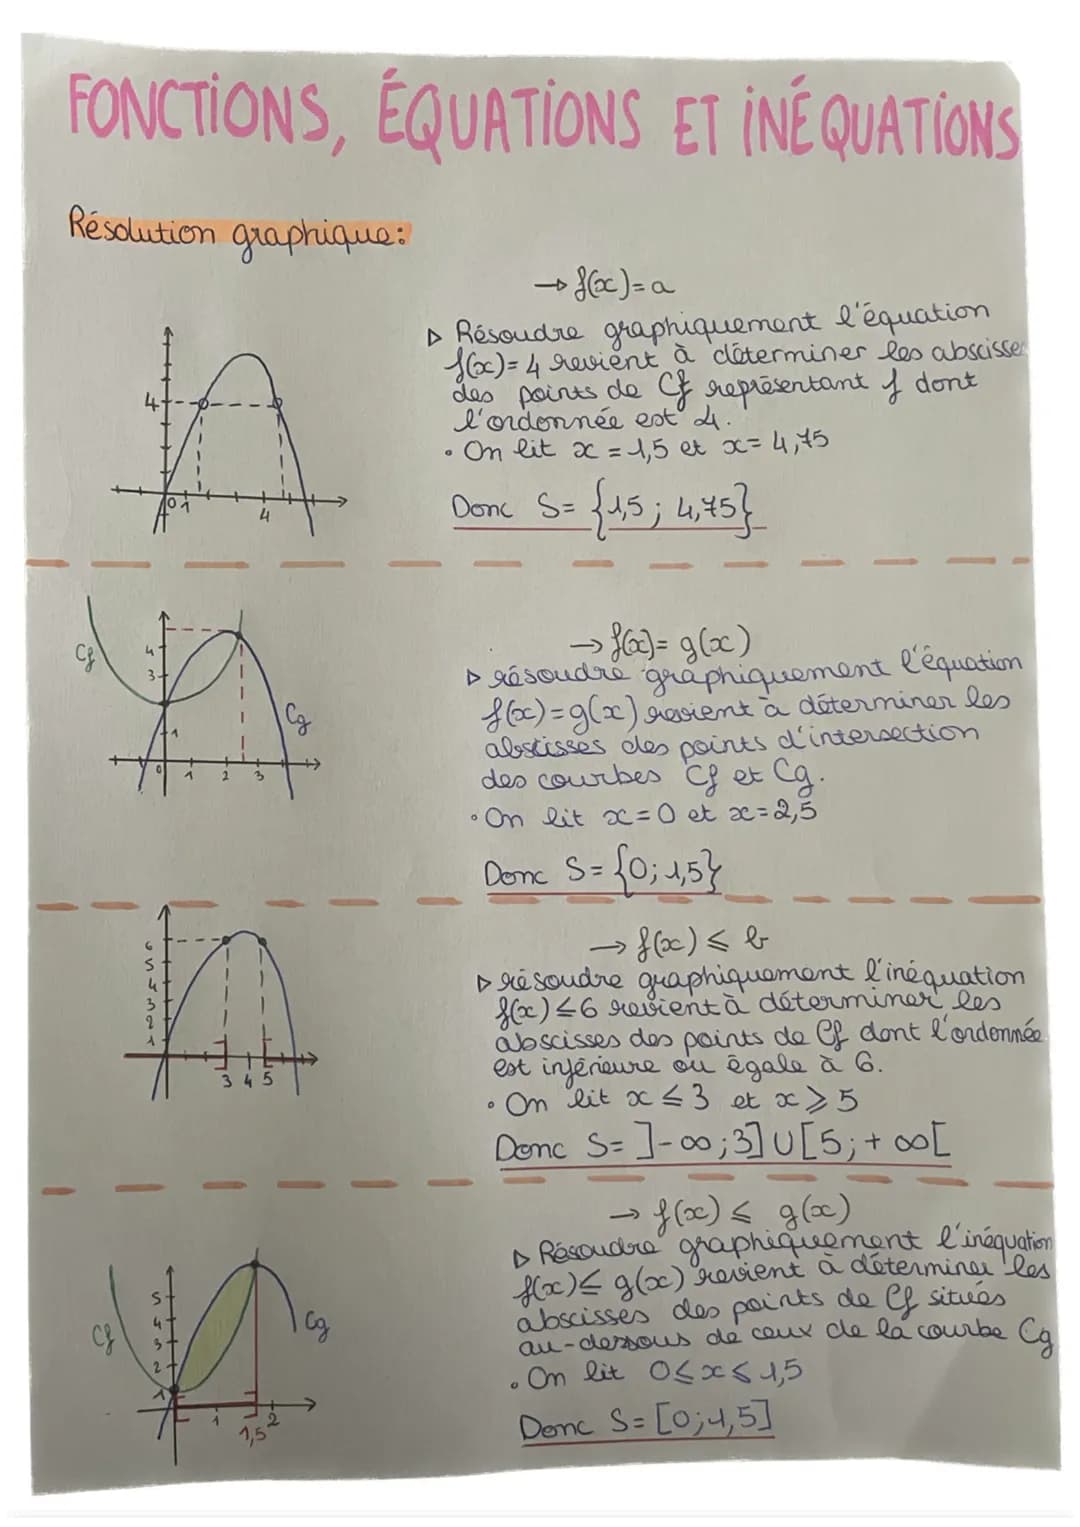 FONCTIONS, ÉQUATIONS ET INÉQUATIONS
Résolution graphique:
→ f(x)= a
▷ Résoudre graphiquement l'équation
f(x)= 4 revient à déterminer les abscisses
des points de Cf représentant f dont
l'ordonnée est 4.
• On lit x = 1,5 et x= 4,75
Donc S= {1,5 ; 4,75}
4
0 1
4
→ f(x)= g(x)
▷ résoudre graphiquement l'équation
f(x)=g(x) revient à déterminer les
abscisses des points d'intersection
des courbes Cf et Cg.
• On lit x=0 et x=2,5
Donc S= {0; 1,5}
Cf
4
3
1
Cg
0 1 2 3
→ f(x) ⩽ b
▷ résoudre graphiquement l'inéquation
f(x) ≤6 revient à déterminer les
abscisses des points de Cf dont l'ordonnée
est inférieure ou égale à 6.
• On lit x ⩽ 3 et x ⩾ 5
Donc S= ]-∞;3] U [5;+ ∞[
6
5
4
3
2
1
3 4 5
→ f(x) ⩽ g(x)
▷ Résoudre graphiquement l'inéquation
f(x)≤ g(x) revient à déterminer les
abscisses des points de Cf situés
au-dessous de ceux de la courbe Cg
• On lit 0⩽x⩽1,5
Donc S= [0;1,5]
Cf
5
4
3
2
1
Cg
1 2
1,5